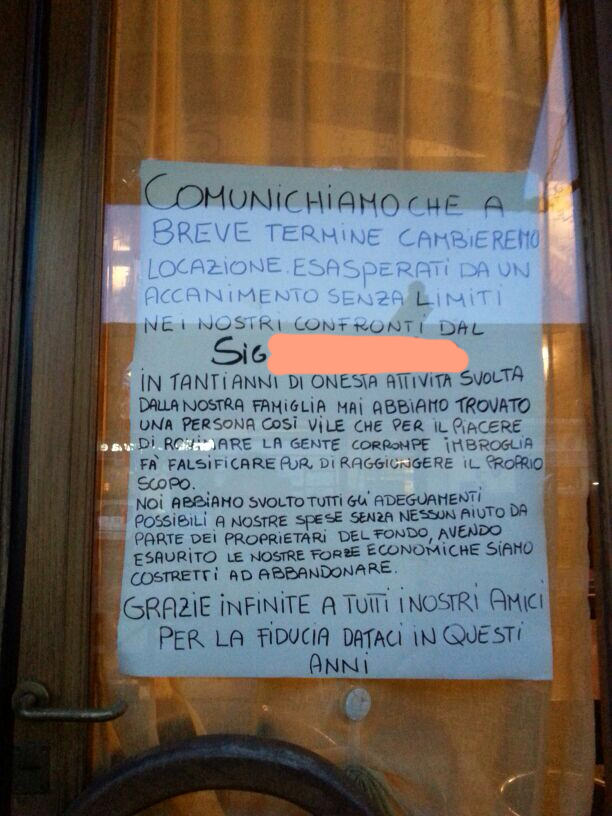 COMUNICHIAMO CHE A
BREVE TERMINE CAMBIEREMO
LOCAZIONE. ESASPERATI DA UN
ACCANIMENTO SENZA LIMITI
NEI NOSTRI CONFRONTI DAL
SIG
IN TANTI ANNI DI ONESTA ATTIVITÀ SVOLTA
DALLA NOSTRA FAMIGLIA MAI ABBIAMO TROVATO
UNA PERSONA COSÌ VILE CHE PER IL PIACERE
DI ROVINARE LA GENTE CORROMPE IMBROGLIA
FÀ FALSIFICARE PUR DI RAGGIONGERE IL PROPRIO
SCOPO.
NOI ABBIAMO SVOLTO TUTTI GLI ADEGUAMENTI
POSSIBILI A NOSTRE SPESE SENZA NESSUN AIUTO DA
PARTE DEI PROPRIETARI DEL FONDO, AVENDO
ESAURITO LE NOSTRE FORZE ECONOMICHE SIAMO
COSTRETTI AD ABBANDONARE.
GRAZIE INFINITE A TUTTI I NOSTRI AMICI
PER LA FIDUCIA DATACI IN QUESTI
ANNI